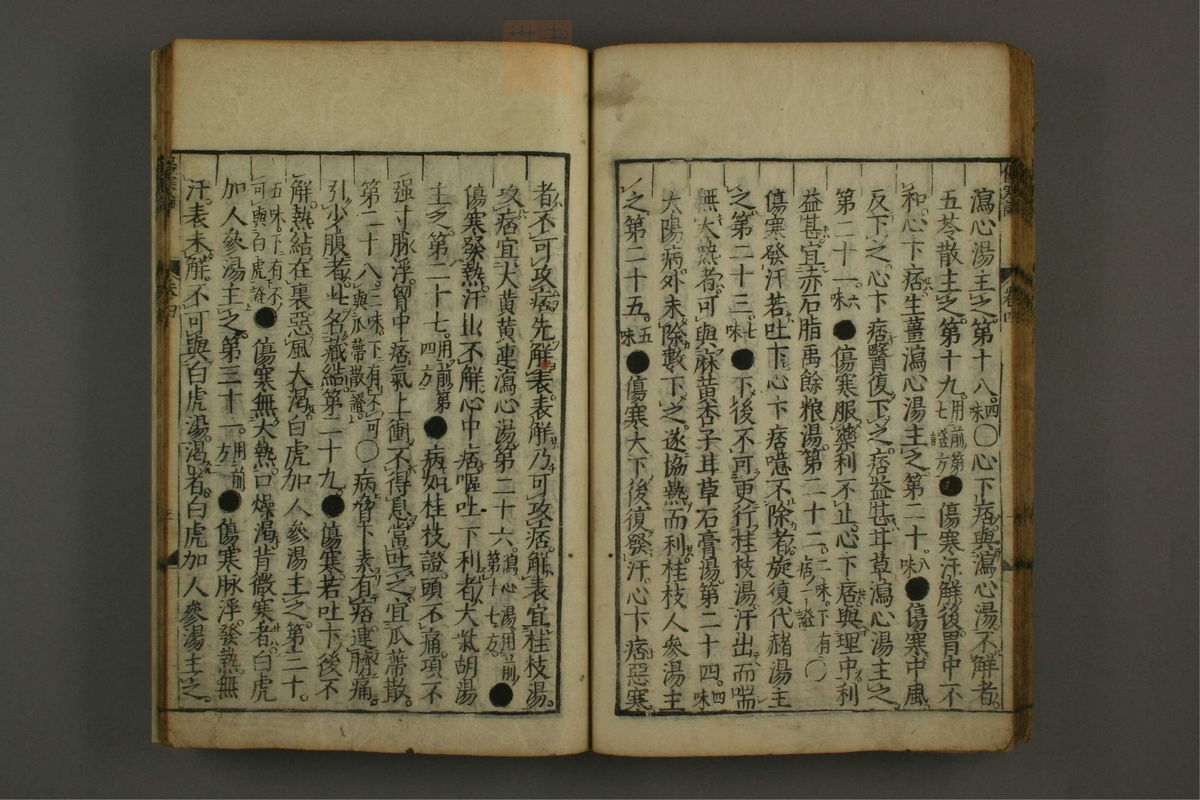 瀉心湯主之第十八四味○心下痞與瀉心湯不解者
五苓散主之第十九用前第七證方●傷寒汗解後胃中不
和心下痞生薑瀉心湯主之第二十八味●傷寒中風
反下之心下痞醫復下之痞益甚甘草瀉心湯主之
第二十一六味●傷寒服藥利不止心下痞與理中利
益甚宜赤石脂禹餘粮湯第二十二二味下有痞一證○
傷寒發汗若吐下心下痞噫不除者旋復代赭湯主
之第二十三七味●下後不可更行桂枝湯汗出而喘
無大熱者可與麻黄杏子甘草石膏湯第二十四四味
太陽病外未除數下之遂協熱而利桂枝人參湯主
之第二十五五味●傷寒大下後復發汗心下痞惡寒
者不可攻痞先解表表解乃可攻痞解表宜桂枝湯
攻痞宜大黄黄連瀉心湯第二十六瀉心湯用前第十七方●
傷寒發熱汗出不解心中痞嘔吐下利者大柴胡湯
主之第二十七用前第四方●病如桂枝證頭不痛項不
强寸脉浮胷中痞氣上衝不得息當吐之宜瓜蒂散
第二十八三味下有不可與瓜蒂散證○病脅下素有痞連臍痛
引少腹者此名藏結第二十九●傷寒若吐下後不
解熱結在裏惡風大渴白虎加人參湯主之第三十
五味下有不可與白虎證●傷寒無大熱口燥渴背微寒者白虎
加人參湯主之第三十一用前方●傷寒脉浮發熱無
汗表未解不可與白虎湯渴者白虎加人參湯主之